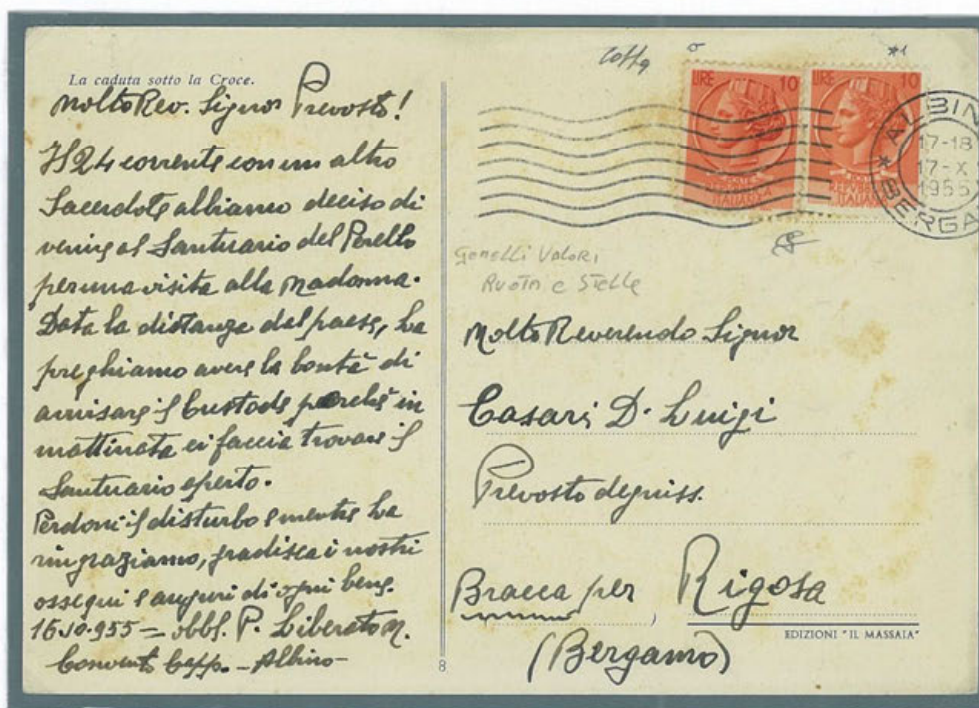 La caduta sotto la Croce.
Molto Rev. Signor Prevosto!
Il 24 corrente con un altro
Sacerdote abbiamo deciso di
venire al Santuario del Perello
per una visita alla Madonna.
Data la distanza dal paese, La
preghiamo avere la bontà di
avvisare il Custode perchè in
mattinata ci faccia trovare il
Santuario aperto.
Perdoni il disturbo e mentre La
ringraziamo, gradisca i nostri
ossequi e auguri di ogni bene.
16.10.955 = obbl. P. Liberato M.
Convento Capp. - Albino -
8
LIRE 10
LIRE 10
REPUBBLICA
ITALIANA
REPUBBLICA
ITALIANA
ALBIN
17-18
17-X
1955
BERGA
Gemelli Valori
Ruota e Stelle
Molto Reverendo Signor
Casari D. Luigi
Prevosto degniss.
Bracca per Rigosa
(Bergamo)
EDIZIONI "IL MASSAIA"